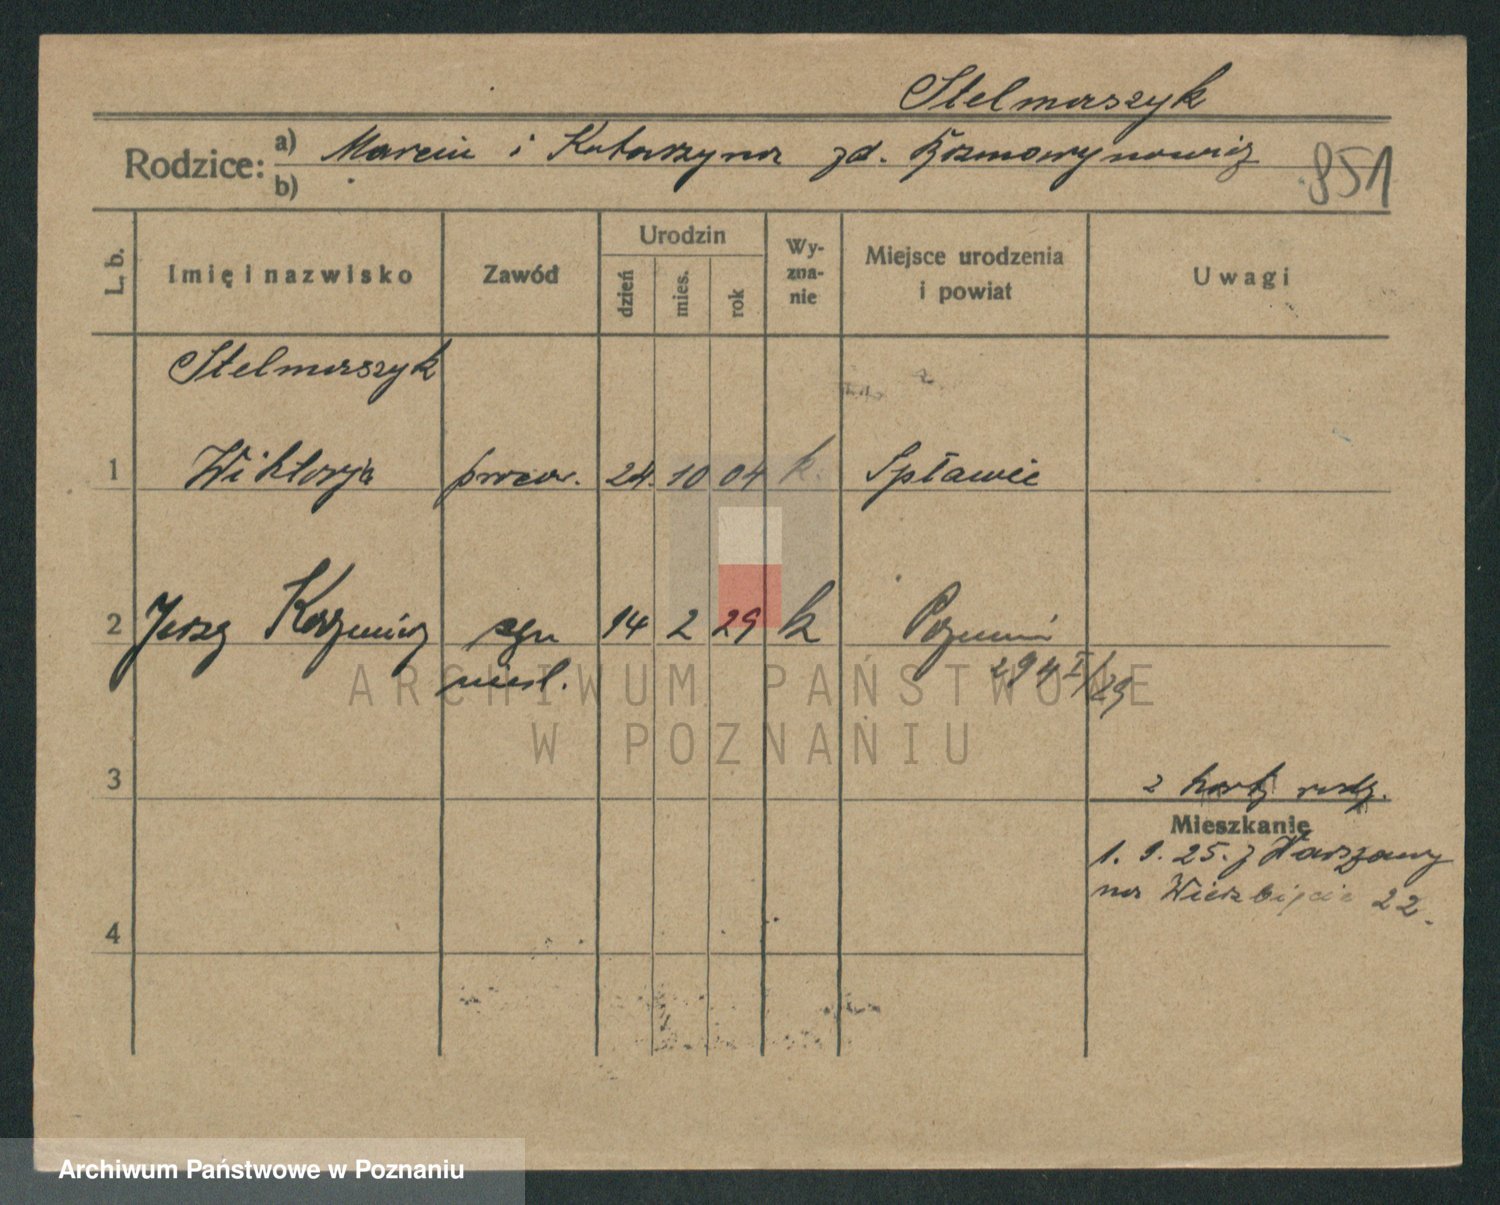 Stelmaszyk
Rodzice: a) Marcin i Katarzyna zd.
b)
851
L. b.
Imię i nazwisko
Zawód
Urodzin
dzień
mies.
rok
Wy-
zna-
nie
Miejsce urodzenia
i powiat
Uwagi
Stelmaszyk
1 Wiktorja pracow. 24. 10 04 k. Spławie
2 Jerzy Kazimierz syn 14 2 29 k Poznań
nieśl. 294 I/29
ARCHIWUM PAŃSTWOWE
W POZNANIU
3
2 karty rodz.
Mieszkanie
1. 9. 25. z Warszawy
na Wierzbięcie 22.
4
Archiwum Państwowe w Poznaniu